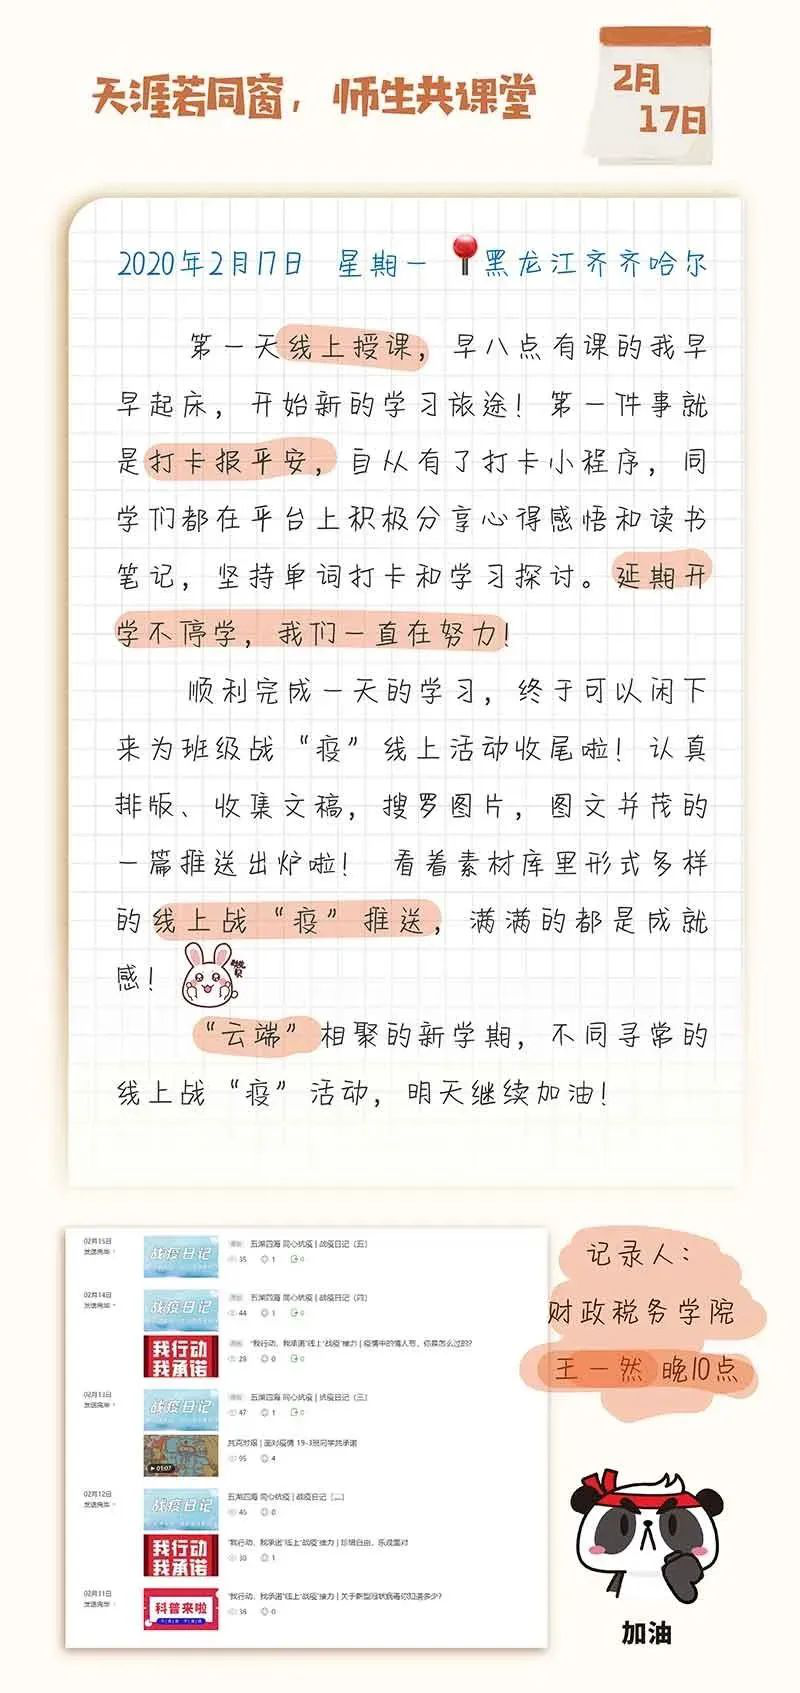 天涯若同窗，师生共课堂
2月
17日
2020年2月17日 星期一 黑龙江齐齐哈尔
第一天线上授课，早八点有课的我早
早起床，开始新的学习旅途！第一件事就
是打卡报平安，自从有了打卡小程序，同
学们都在平台上积极分享心得感悟和读书
笔记，坚持单词打卡和学习探讨。延期开
学不停学，我们一直在努力！
顺利完成一天的学习，终于可以闲下
来为班级战“疫”线上活动收尾啦！认真
排版、收集文稿，搜罗图片，图文并茂的
一篇推送出炉啦！ 看着素材库里形式多样
的线上战“疫”推送，满满的都是成就
感！
“云端”相聚的新学期，不同寻常的
线上战“疫”活动，明天继续加油！
02月15日
发送完毕
战疫日记
五湖四海 同心抗疫 | 战疫日记（五）
35 1 0
02月14日
发送完毕
战疫日记
五湖四海 同心抗疫 | 战疫日记（四）
44 1 0
我行动
我承诺
“我行动、我承诺”线上“战疫”接力 | 疫情中的情人节，你是怎么过的?
28 0 0
02月13日
发送完毕
战疫日记
五湖四海 同心抗疫 | 抗疫日记（三）
47 1 0
01:07
共克时艰 | 面对疫情 19-3班同学共承诺
95 4
02月12日
发送完毕
战疫日记
五湖四海 同心抗疫 | 战疫日记（二）
45 0
我行动
我承诺
“我行动、我承诺”线上“战疫”接力 | 珍惜自由、乐观面对
30 1
02月11日
发送完毕
科普来啦
“我行动、我承诺”线上“战疫”接力 | 关于新型冠状病毒你知道多少?
36 0
记录人：
财政税务学院
王一然 晚10点
加油